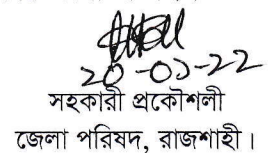 20-01-22
সহকারী প্রকৌশলী
জেলা পরিষদ, রাজশাহী।